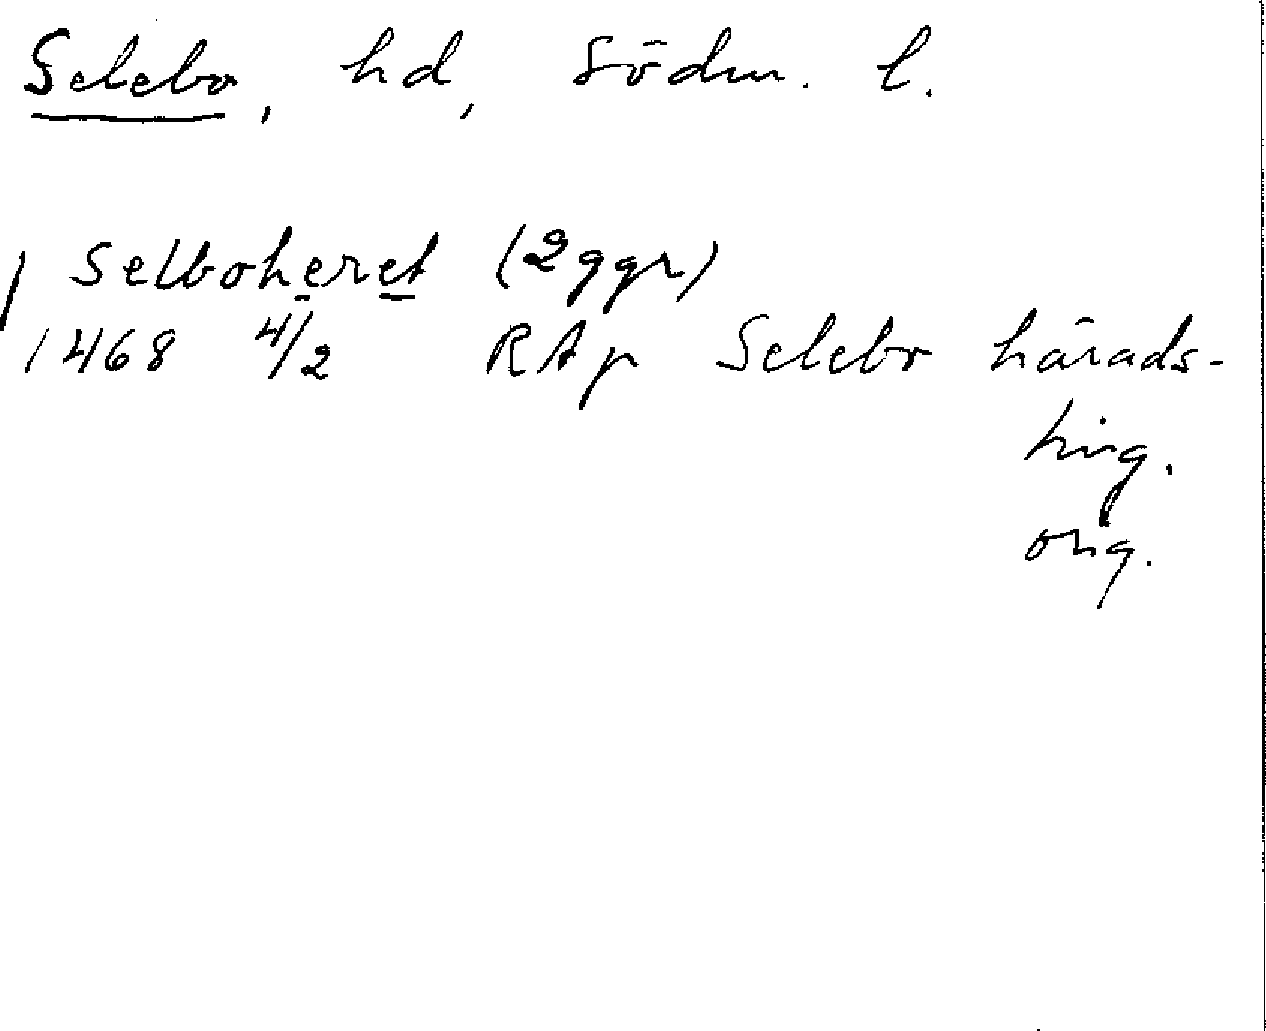 Selebo, hd, Södm. l.
Selboheret (2 ggr)
1468 4/2 RAp Selebo härads-
ting.
orig.